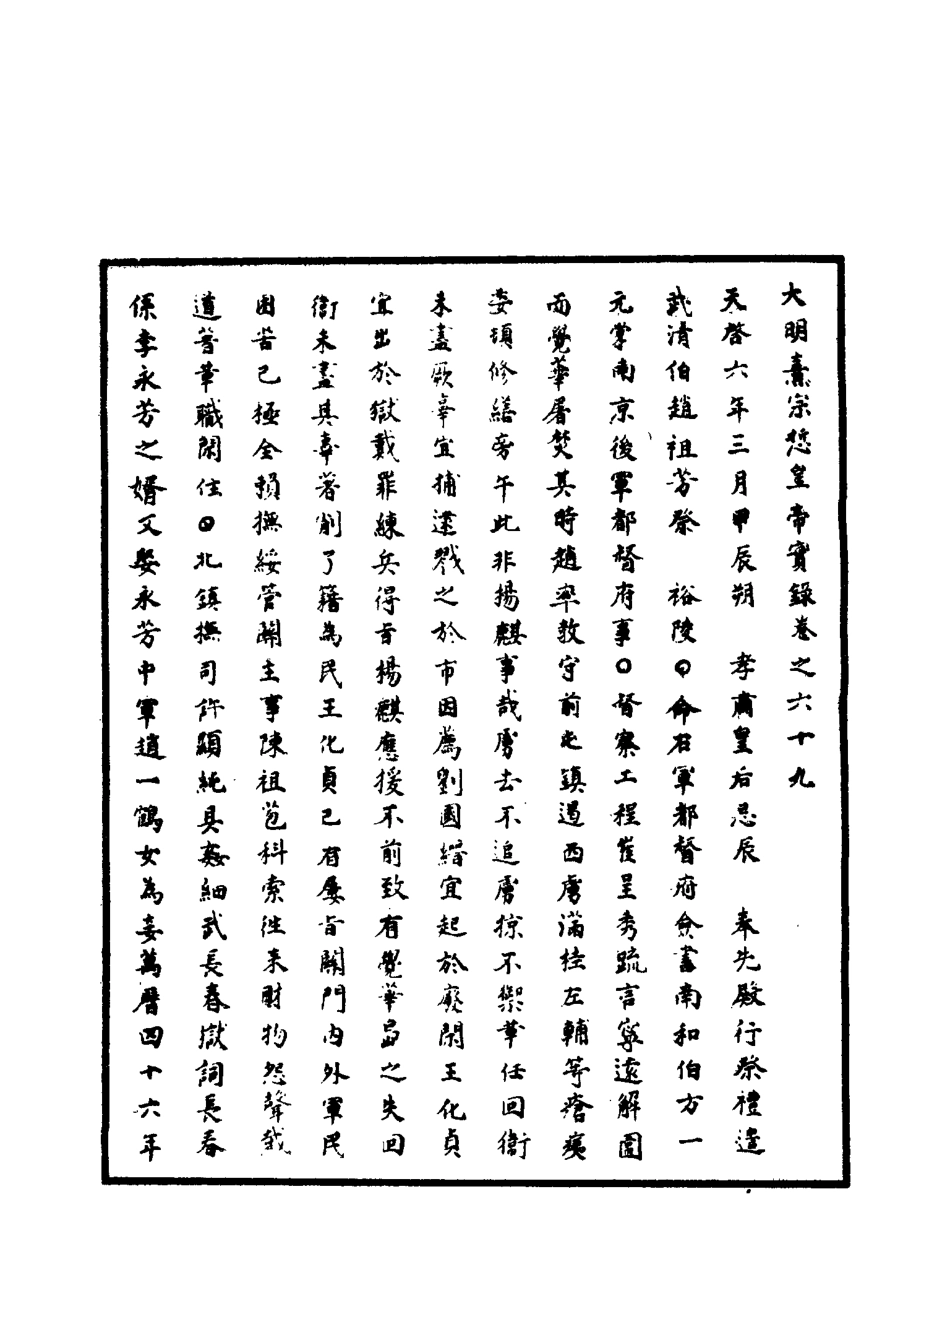 大明熹宗悊皇帝實錄卷之六十九
天啓六年三月甲辰朔　孝肅皇后忌辰　奉先殿行祭禮遣
武清伯趙祖芳祭　裕陵○命右軍都督府僉書南和伯方一
元掌南京後軍都督府事○督察工程崔呈秀疏言寧遠解圍
而覺華屠焚其時趙率教守前屯鎮遏西虜滿桂左輔等瘡痍
婁頊修繕旁午此非揚麒事哉虜去不追虜掠不禦華任回衛
未盡厥辜宜捕逮戮之於市因薦劉國縉宜起於廢閑王化貞
宜出於獄戴罪練兵得旨揚麒應援不前致有覺華島之失回
衛未盡其辜著削了籍為民王化貞已有屢旨關門內外軍民
困苦已極全賴撫綏管關主事陳祖苞科索往來財物怨聲載
道著革職閑住○北鎮撫司許顯純具姦細武長春獄詞長春
係李永芳之婿又娶永芳中軍趙一鶴女為妾萬曆四十六年